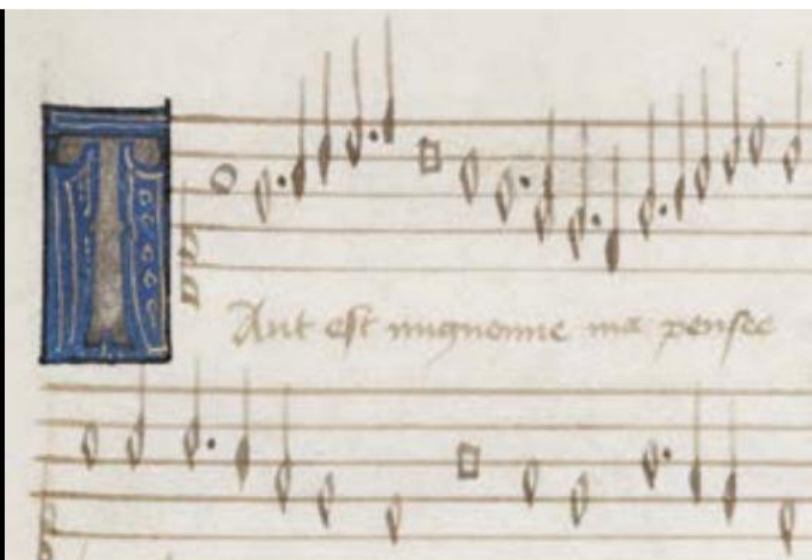 TAut est mignonne ma pensee